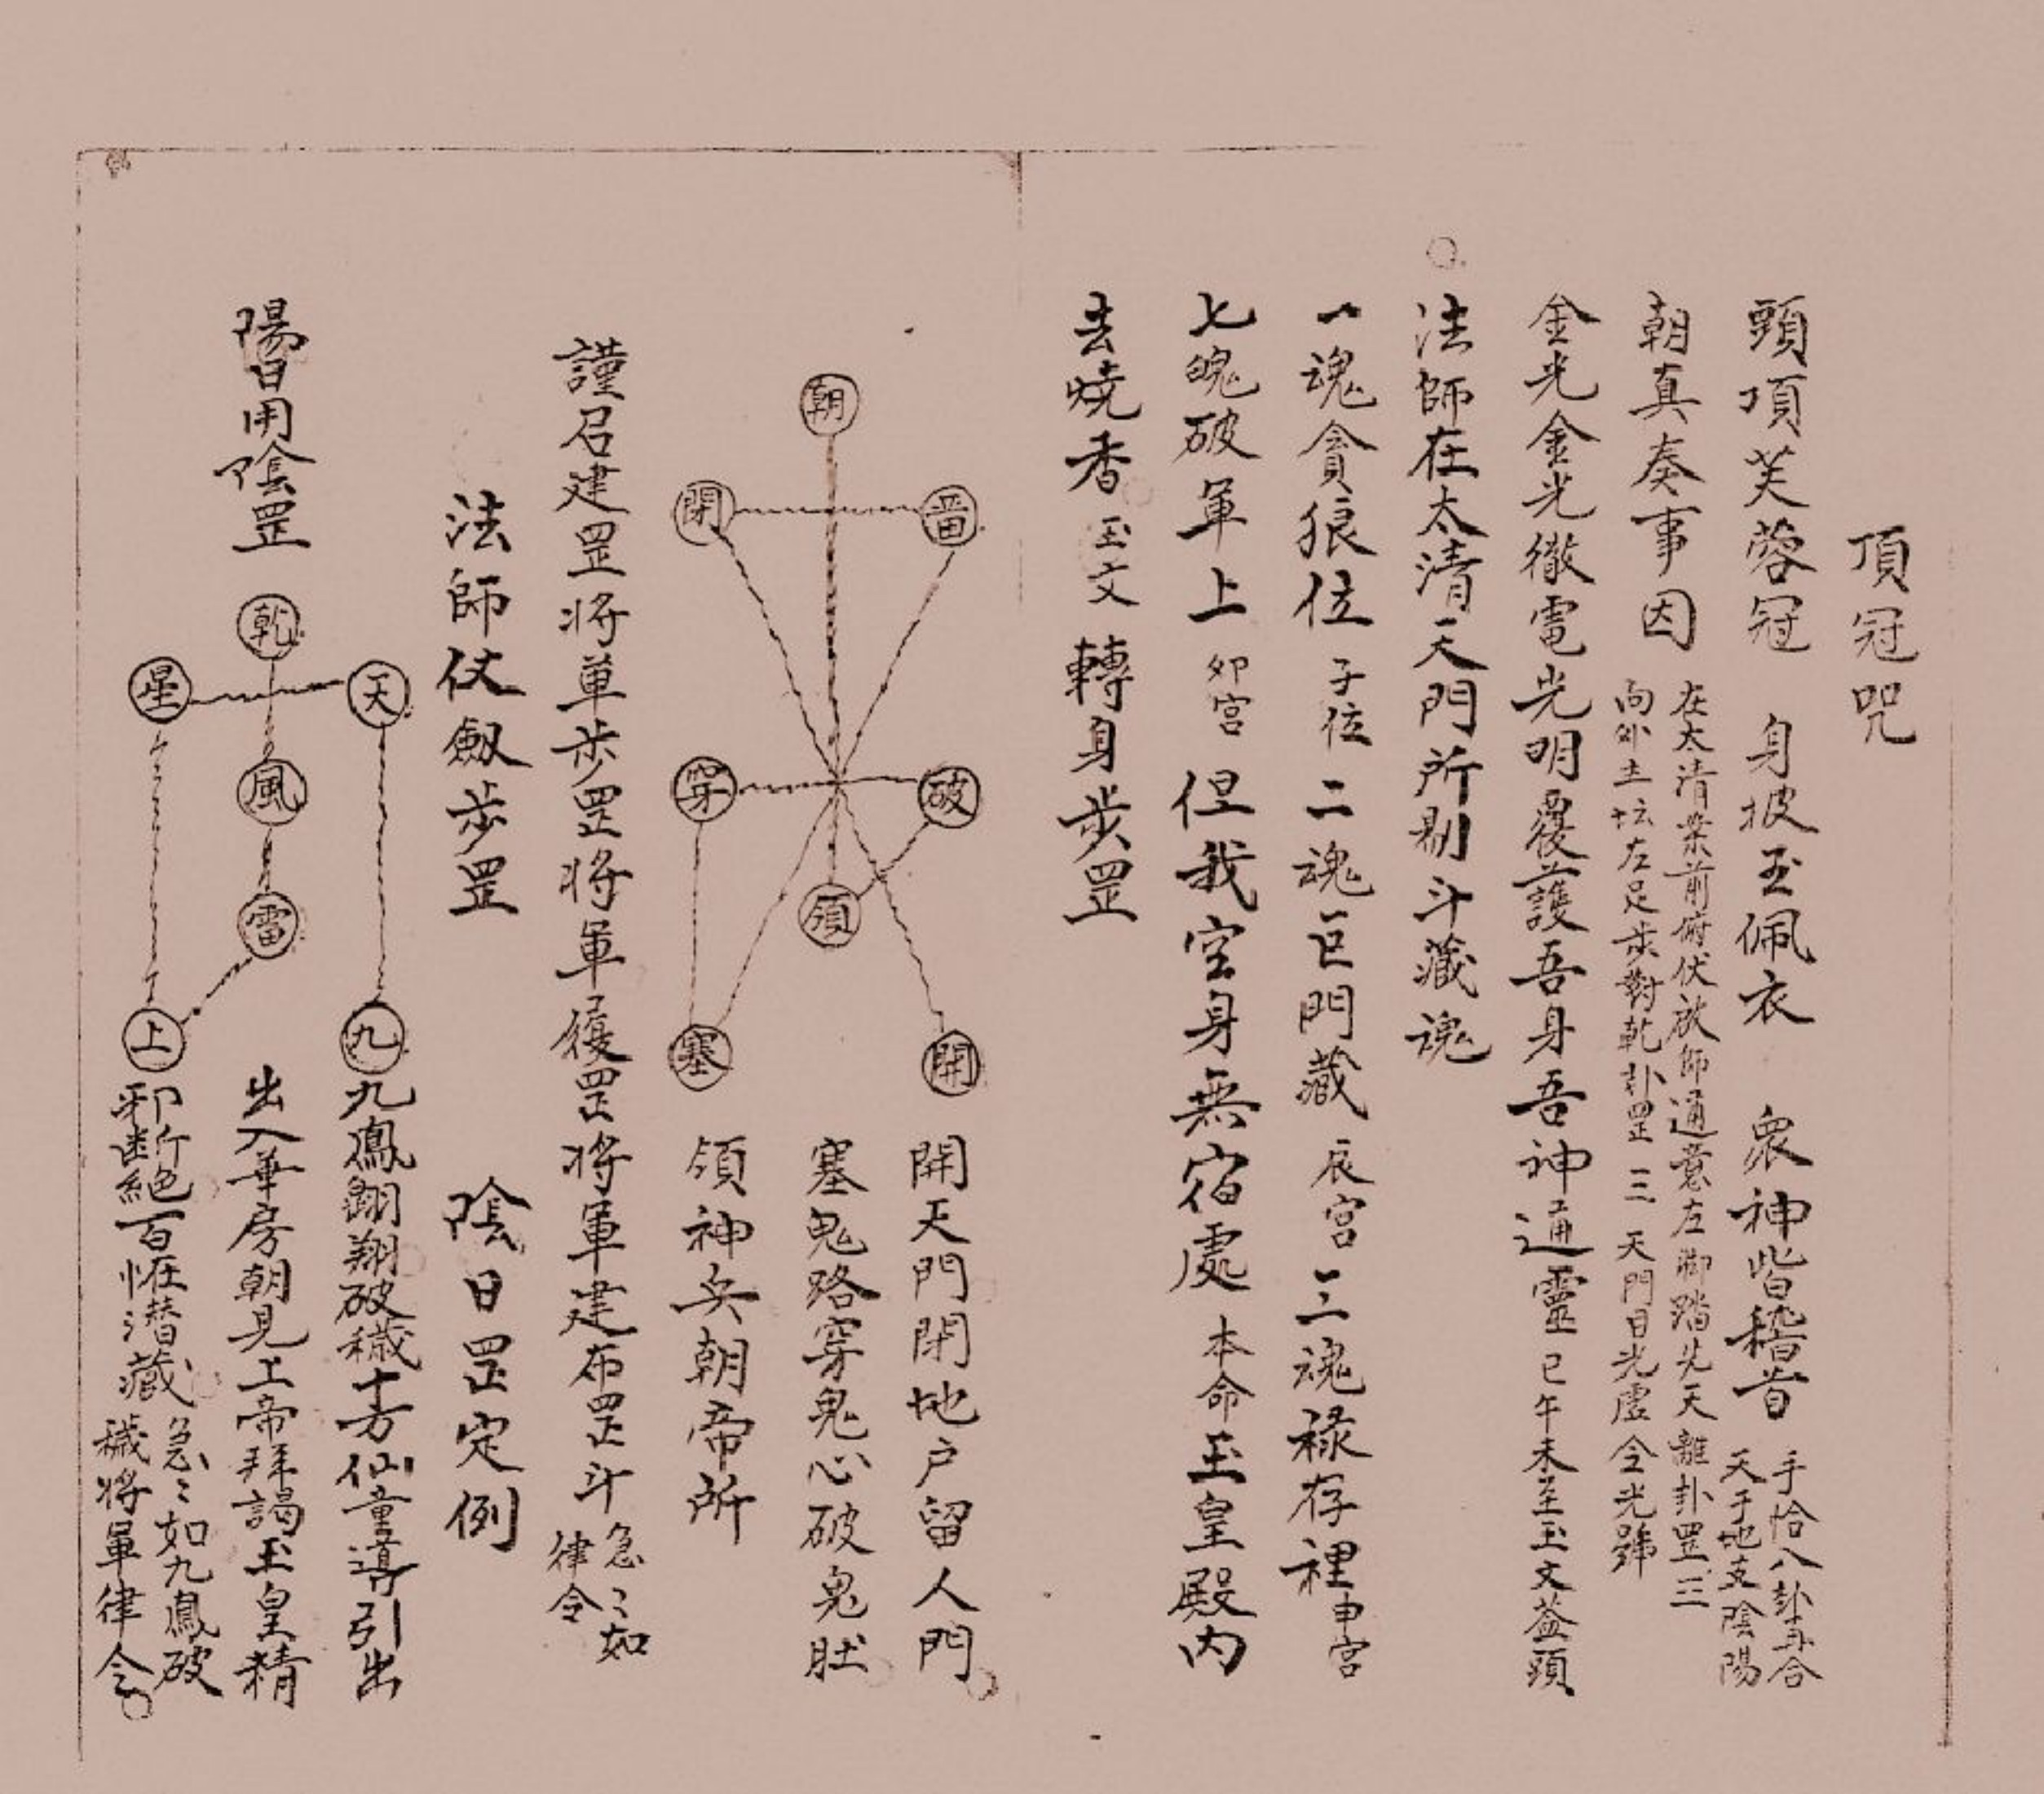 頂冠咒
頭頂芙蓉冠 身披玉佩衣 衆神皆稽首 手恰八卦身合
天于地支陰陽
朝真奏事因 在太清業前俯伏放師通意左腳踏先天離卦罡三
向外主坛左足步對乾卦罡三 天門日光虛 令光號
金光金光徹電光明覆護吾身吾神通靈 已午未至玉文蓋頭
法師在太清天門所剔斗藏魂
一魂貪狼位 子位 二魂巨門藏 辰宮 三魂祿存裡 申宮
七魄破軍上 卯宮 但我空身無宿處 本命玉皇殿内
去燒香 玉文 轉身步罡
開天門閉地户留人門
塞鬼路穿鬼心破鬼肚
領神兵朝帝所
朝
閉 畱
穿 破
領
塞 開
謹召建罡将單步罡将軍履罡将軍建布罡斗 急〻如
律令
法師仗劔步罡 陰日罡定例
陽日用陰罡
乾
星 天
風
雷
上 九
九鳳翱翔破穢十方仙童導引出
出入華房朝見上帝拜謁玉皇精
邪断絕百恠潜藏 急〻如九鳳破
穢将軍律令